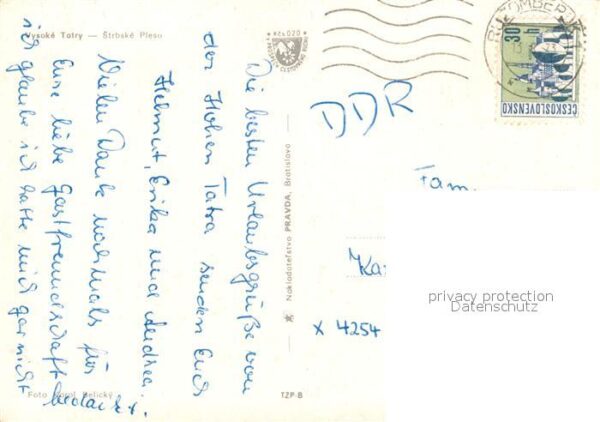 Vysoké Tatry — Štrbské Pleso
Die besten Urlaubsgrüße von
der Hohen Tatra senden Euch
Helmut, Erika und Andrea
Vielen Dank nochmals für
Eure liebe Gastfreundschaft
ich glaube ich hatte mich gar nicht
bedankt.
Foto Karol Belický
TZP-B
Nakladateľstvo PRAVDA, Bratislava
RUŽOMBEROK 1
30 h
ČESKOSLOVENSKO
DDR
Fam.
Kar
x 4254
privacy protection
Datenschutz